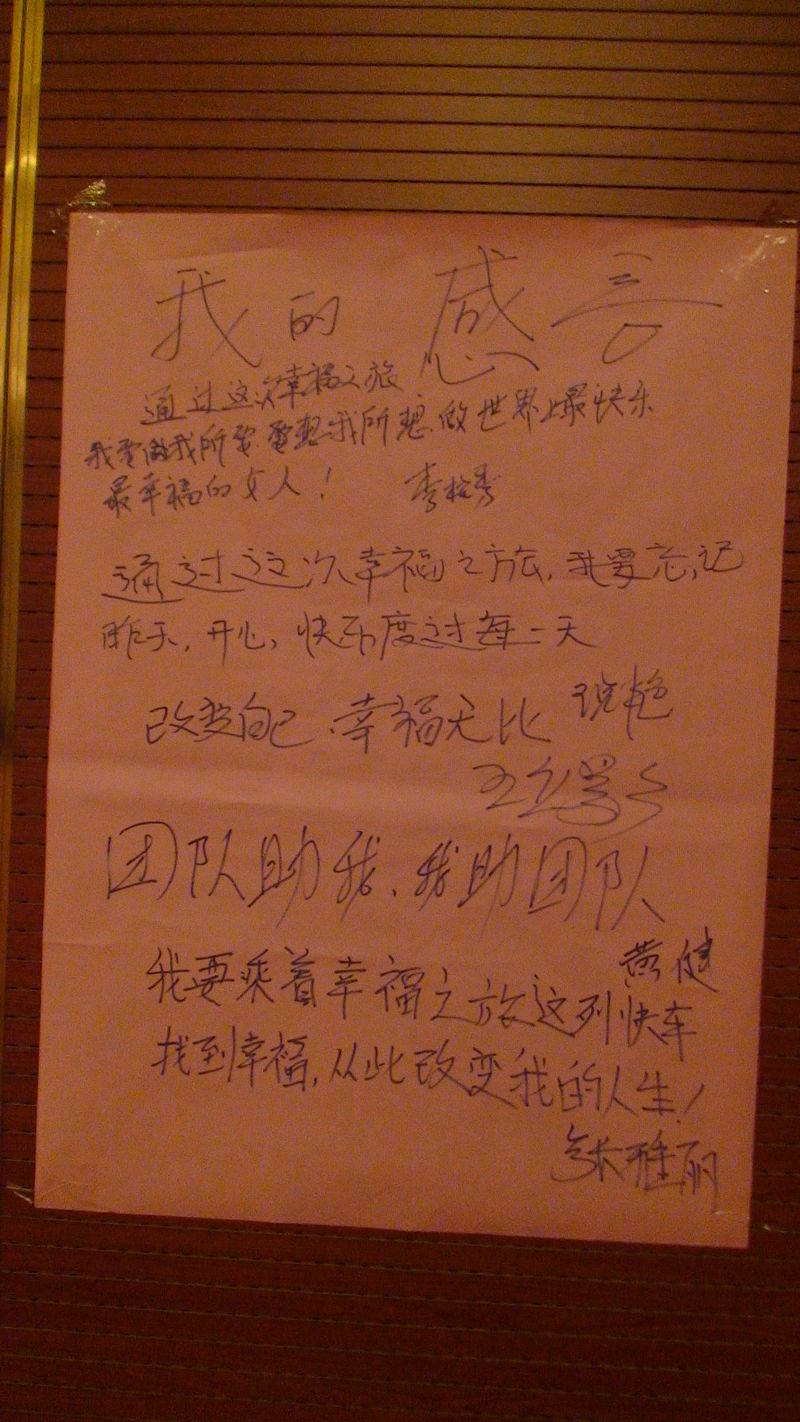 我的感言
通过这次幸福之旅
我要做我所要、要想我所想、做世界上最快乐
最幸福的女人！
通过这次幸福之旅，我要忘记
昨天，开心，快乐度过每一天
改变自己、幸福无比
团队助我、我助团队
黄健
我要乘着幸福之旅这列快车
找到幸福，从此改变我的人生！
张雅丽